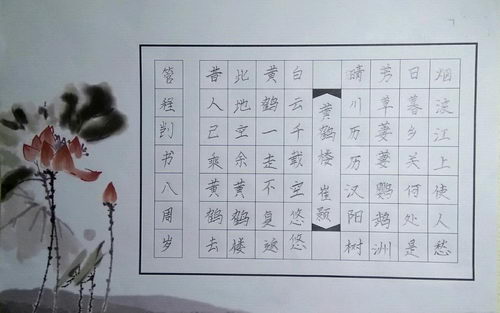 黄鹤楼 崔颢
昔人已乘黄鹤去
此地空余黄鹤楼
黄鹤一走不复返
白云千载空悠悠
晴川历历汉阳树
芳草萋萋鹦鹉洲
日暮乡关何处是
烟波江上使人愁
管程书八周岁